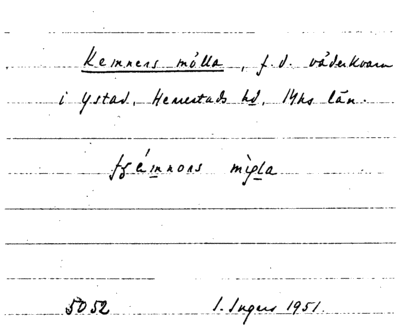 Kemners mölla, f.d. väderkvarn
i Ystad, Herrestads hd, Mhs län.
mìgla
5052 I. Ingers 1951.